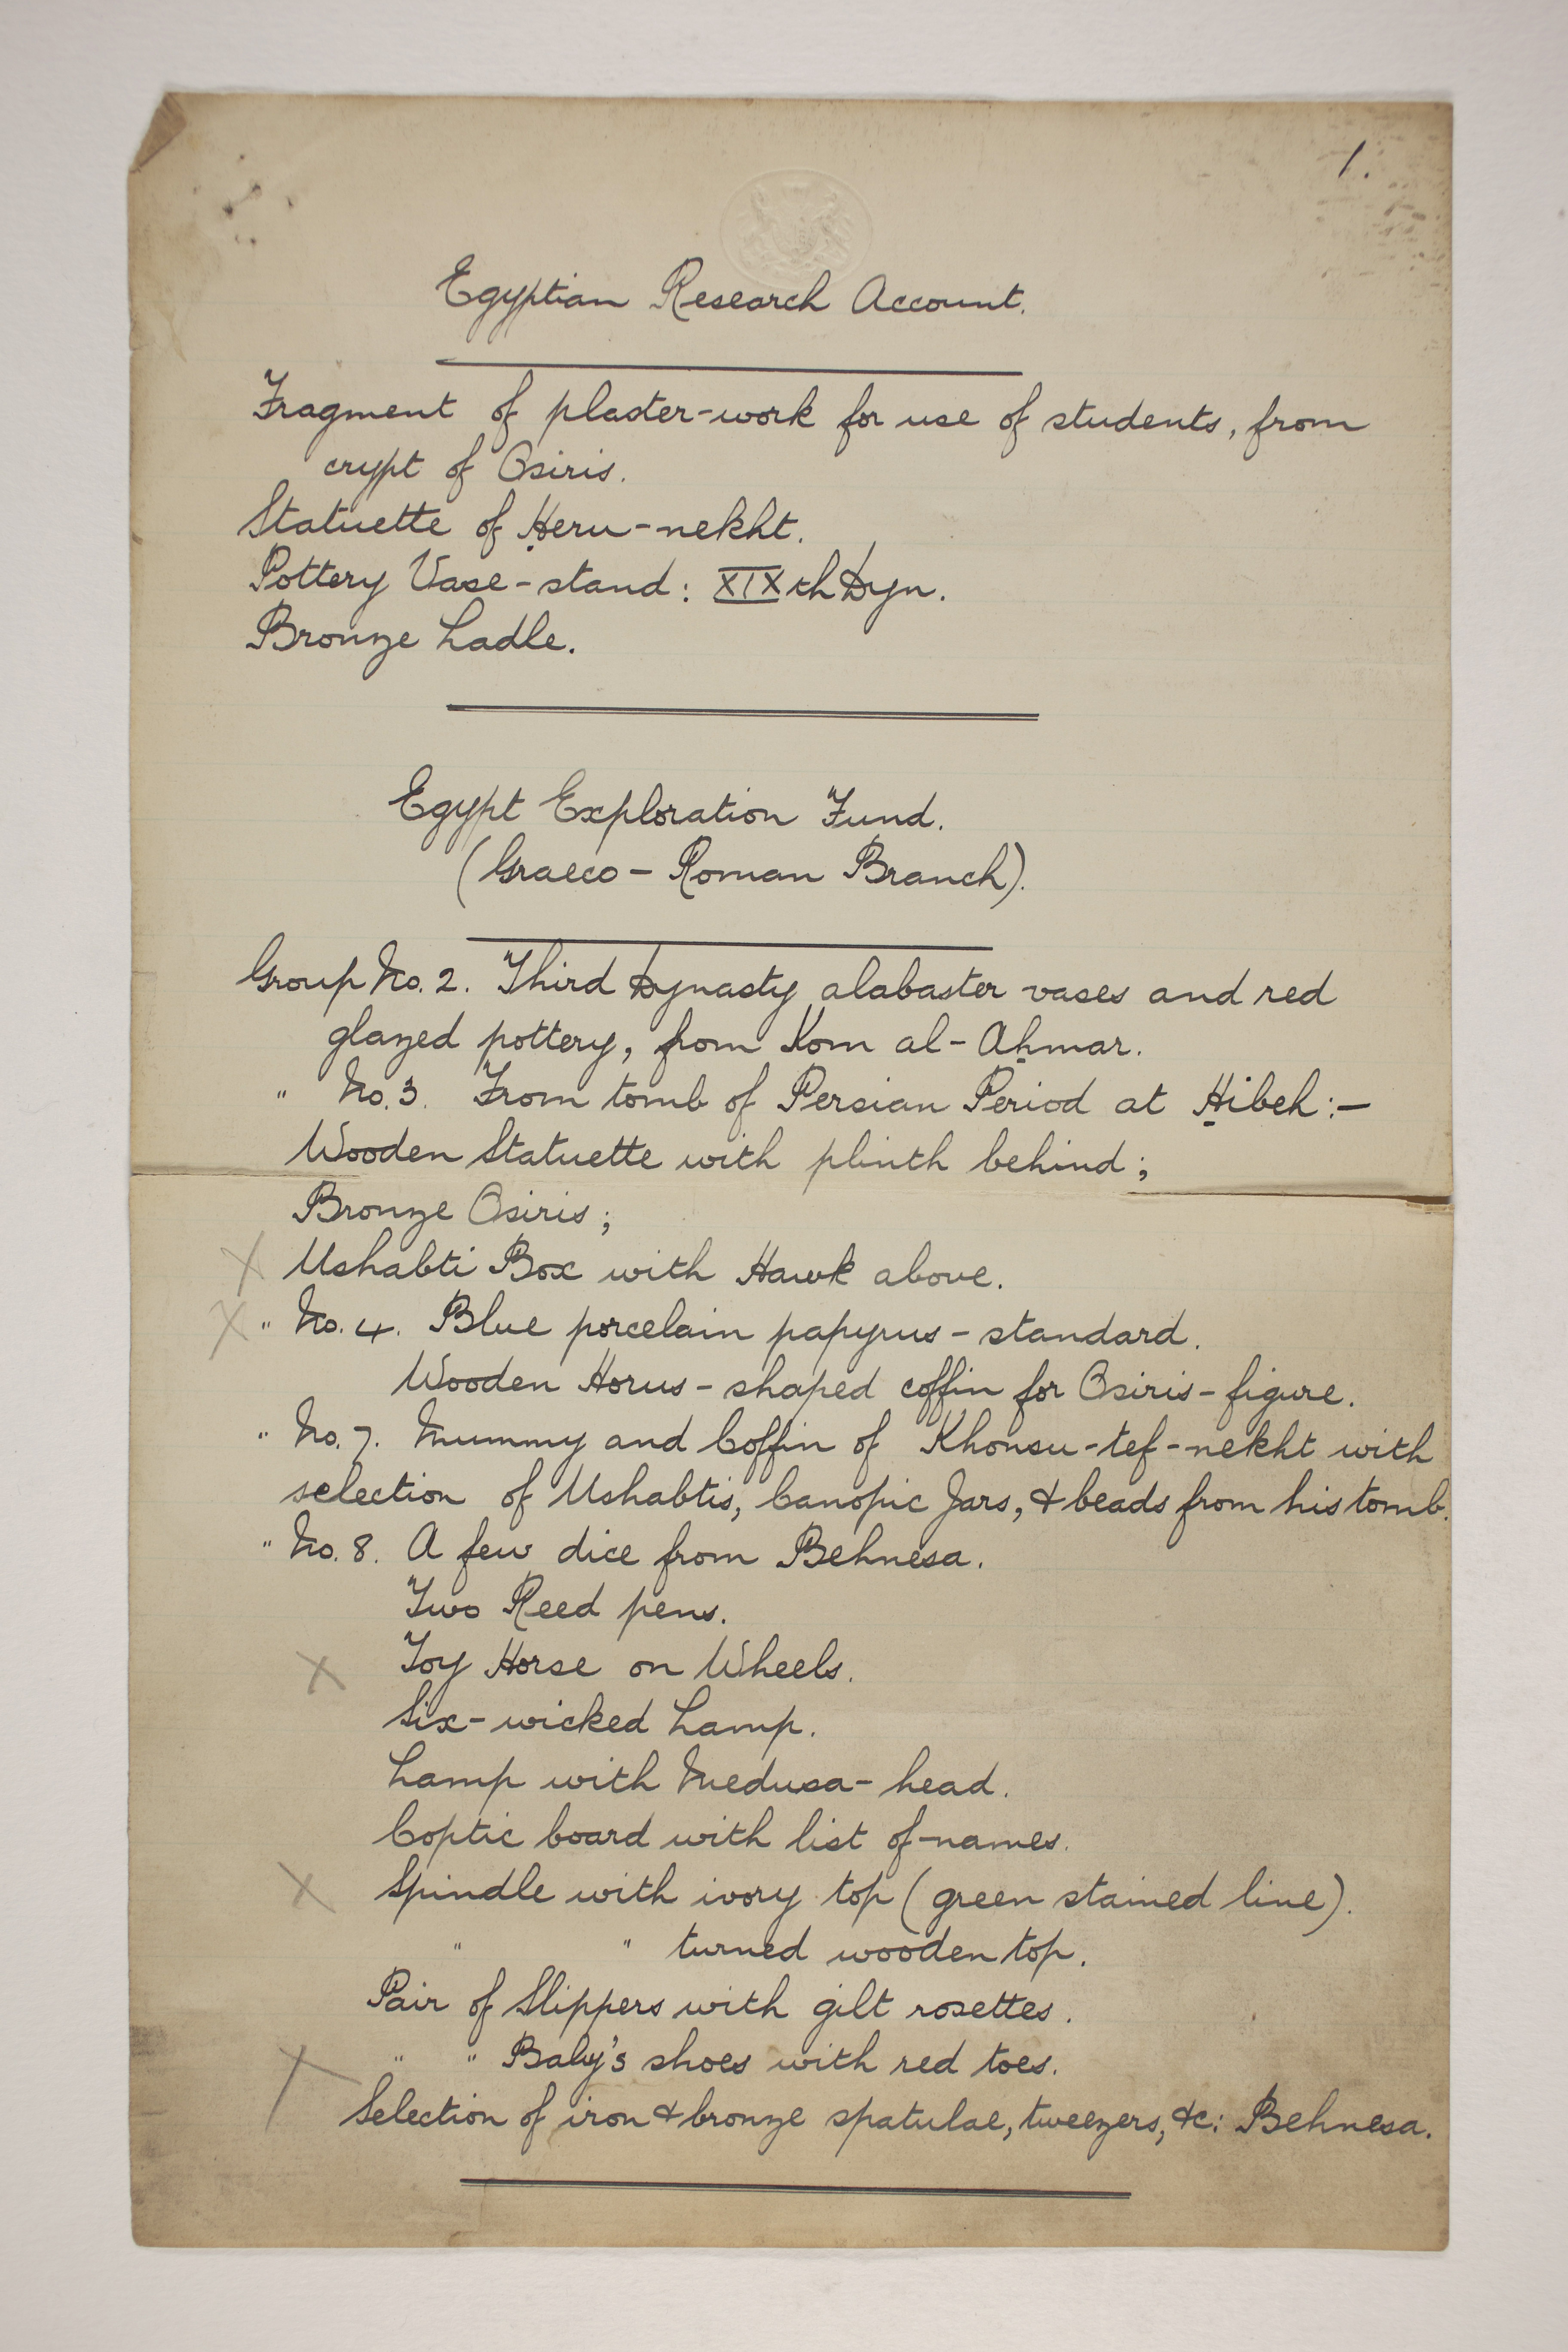 1.
Egyptian Research Account.
Fragment of plaster-work for use of students, from
crypt of Osiris.
Statuette of Ḥeru-nekht.
Pottery Vase-stand: XIXth Dyn.
Bronze Ladle.
Egypt Exploration Fund.
(Graeco-Roman Branch).
Group No. 2. Third Dynasty alabaster vases and red
glazed pottery, from Kom al-Aḥmar.
" No. 3. From tomb of Persian Period at Ḥibeh:—
Wooden Statuette with plinth behind;
Bronze Osiris;
X Ushabti Box with Hawk above.
X " No. 4. Blue porcelain papyrus-standard.
Wooden Horus-shaped coffin for Osiris-figure.
" No. 7. Mummy and Coffin of Khonsu-tef-nekht with
selection of Ushabtis, Canopic Jars, & beads from his tomb.
" No. 8. A few dice from Behnesa.
Two Reed pens.
X Toy Horse on Wheels.
Six-wicked Lamp.
Lamp with Medusa-head.
Coptic board with list of names.
X Spindle with ivory top (green stained line).
" " turned wooden top.
Pair of Slippers with gilt rosettes.
X " " Baby's shoes with red toes.
Selection of iron & bronze spatulae, tweezers, &c: Behnesa.